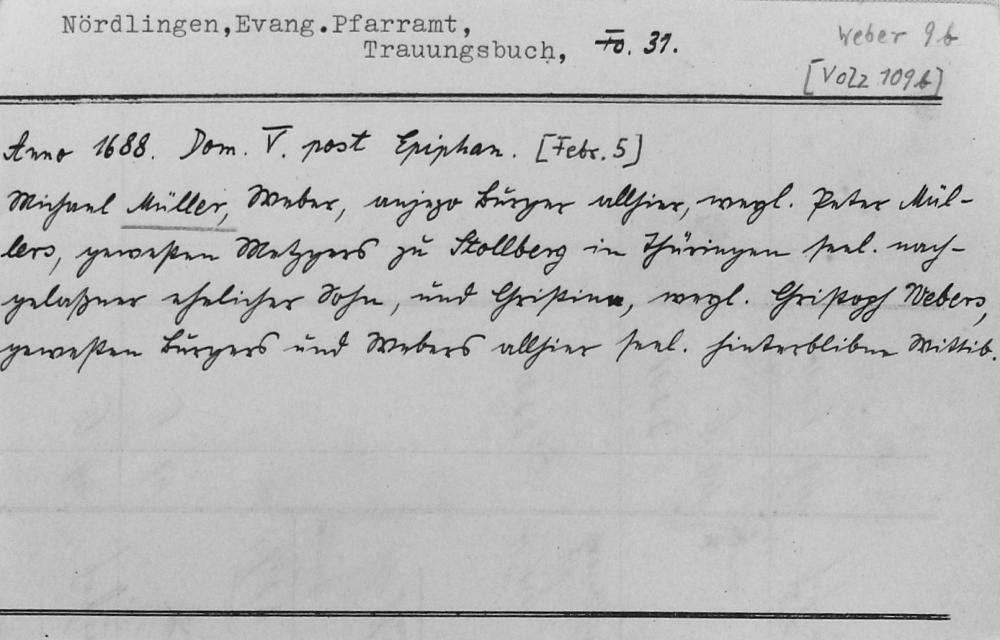 Nördlingen,Evang.Pfarramt,
Trauungsbuch, Fo. 31.
Weber 9b
[Volz 109b]
Anno 1688. Dom. V. post Epiphan. [Febr. 5]
Michael Müller, Weber, anjezo Burger allhier, weyl. Peter Mül-
lers, geweßten Metzgers zu Stollberg in Thüringen seel. nach-
gelaßner ehelicher Sohn, und Christina, weyl. Christoph Webers,
geweßten Burgers und Webers allhier seel. hinterblibne Wittib.